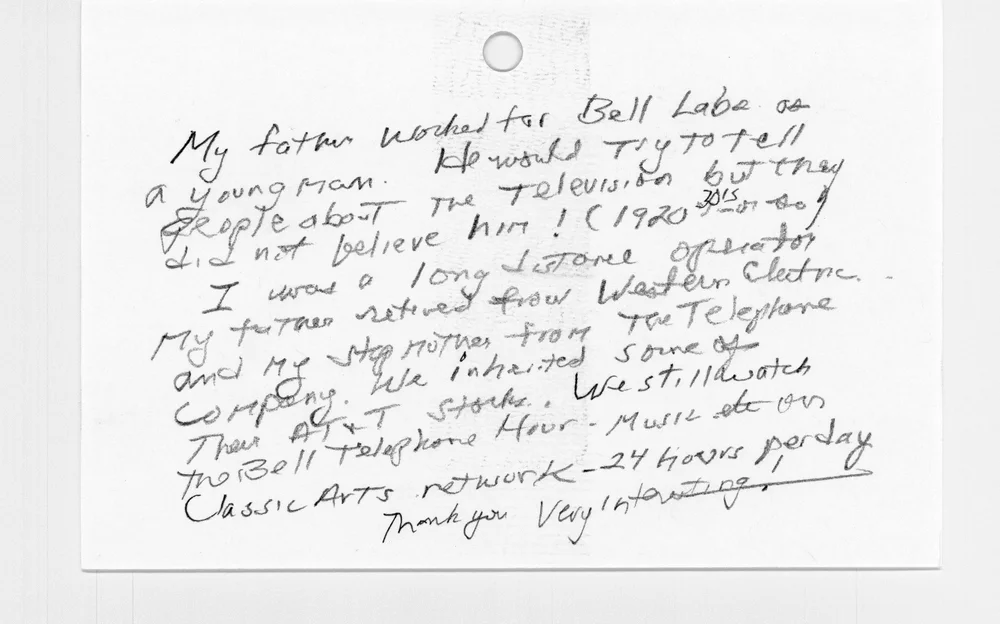 My father worked for Bell Labs as
a young man. He would Try to tell
people about The Television but they
did not believe him! (1920-30's or so)
I was a long distance operator
My father retired from Western Electric.
and my step mother from The Telephone
Company. We inherited some of
Their AT&T stock. We still watch
The Bell Telephone Hour - Music etc on
Classic Arts network - 24 hours per day
Thank you Very Interesting!